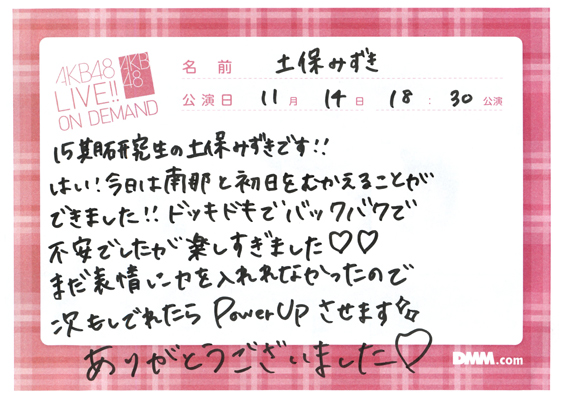 AKB48
LIVE!!
ON DEMAND
AKB
48
名前 土保みずき
公演日 11月 14日 18:30公演
15期研究生の土保みずきです!!
はい!今日は南那と初日をむかえることが
できました!!ドッキドキでバックバクで
不安でしたが楽しすぎました♡♡
まだ表情に力を入れれなかったので
次もしでれたらPowerUpさせます
ありがとうございました♡
DMM.com